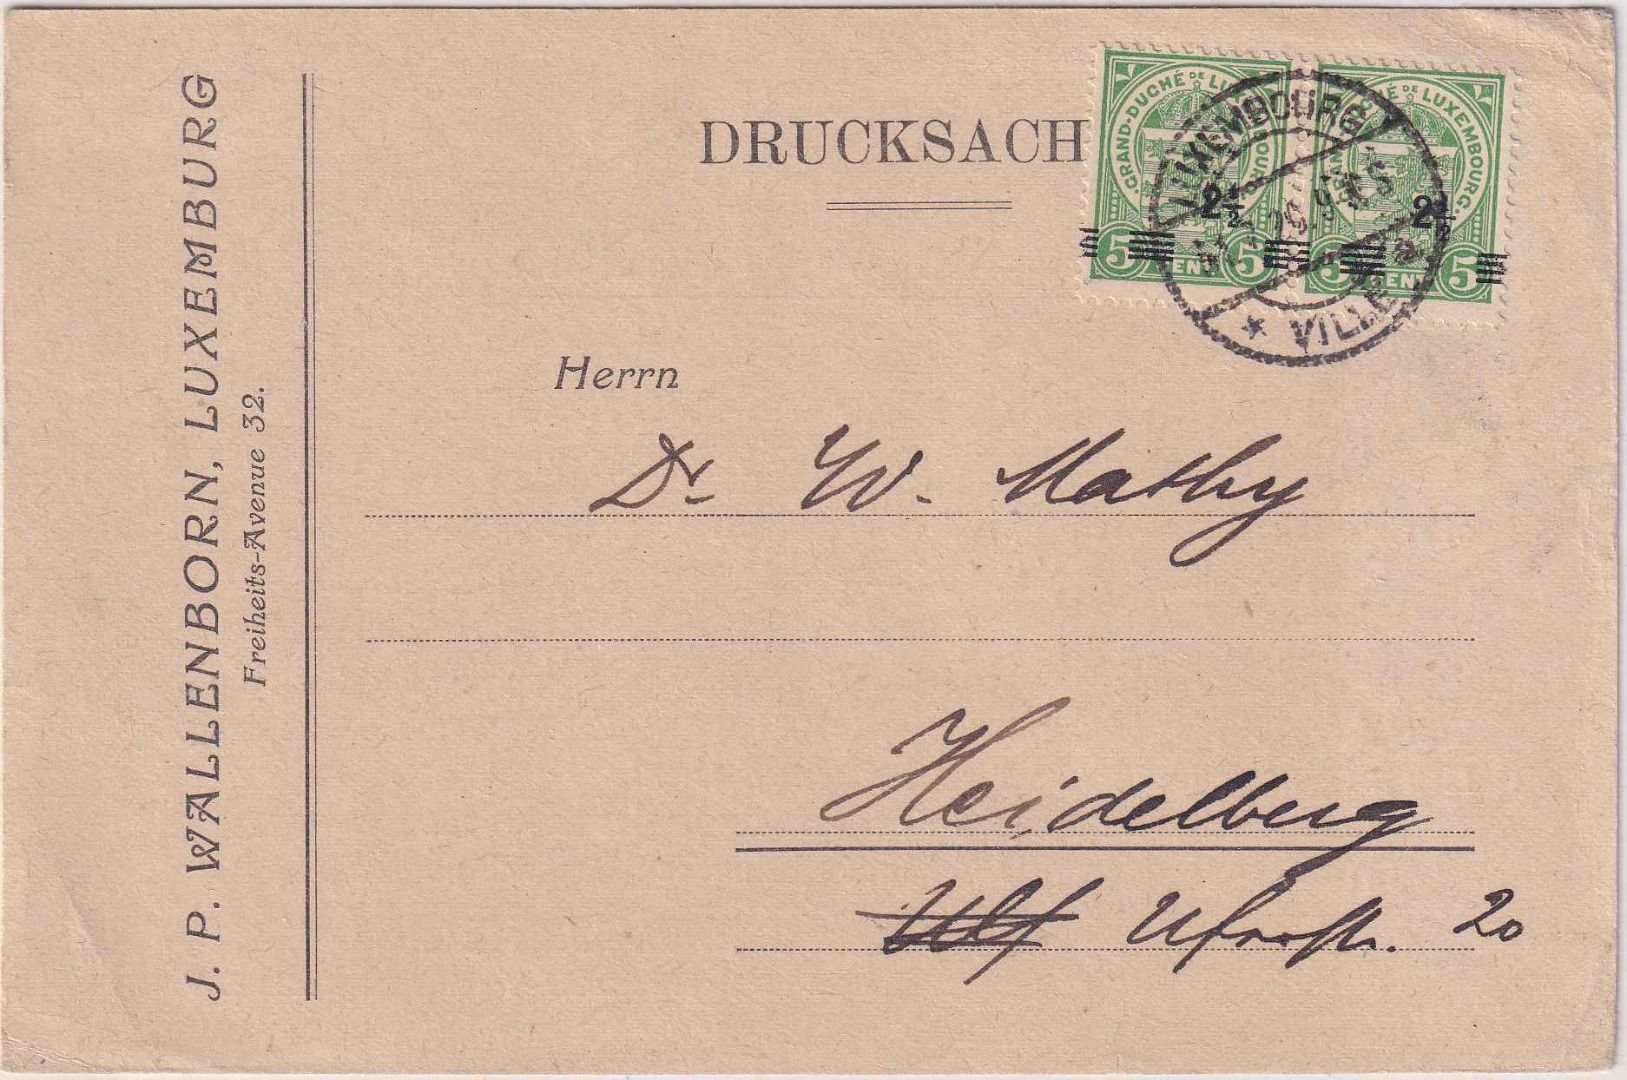 J. P. WALLENBORN, LUXEMBURG
Freiheits-Avenue 32.
DRUCKSACH
GRAND-DUCHÉ DE LUX BOURG.
5 CENT 5
2½
GRAN CHÉ DE LUXEMBOURG.
5 CENT 5
2½
LUXEMBOURG
* VILLE
Herrn
Dr W. Mathy
Heidelberg
Uferstr. 20